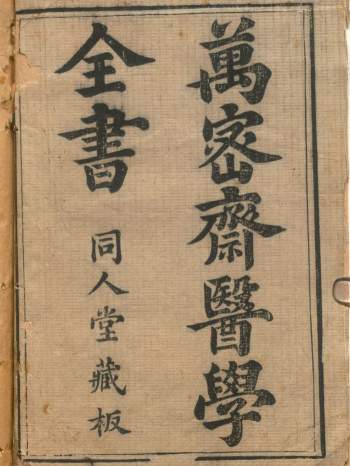 萬密齋醫學
全書
同人堂藏板